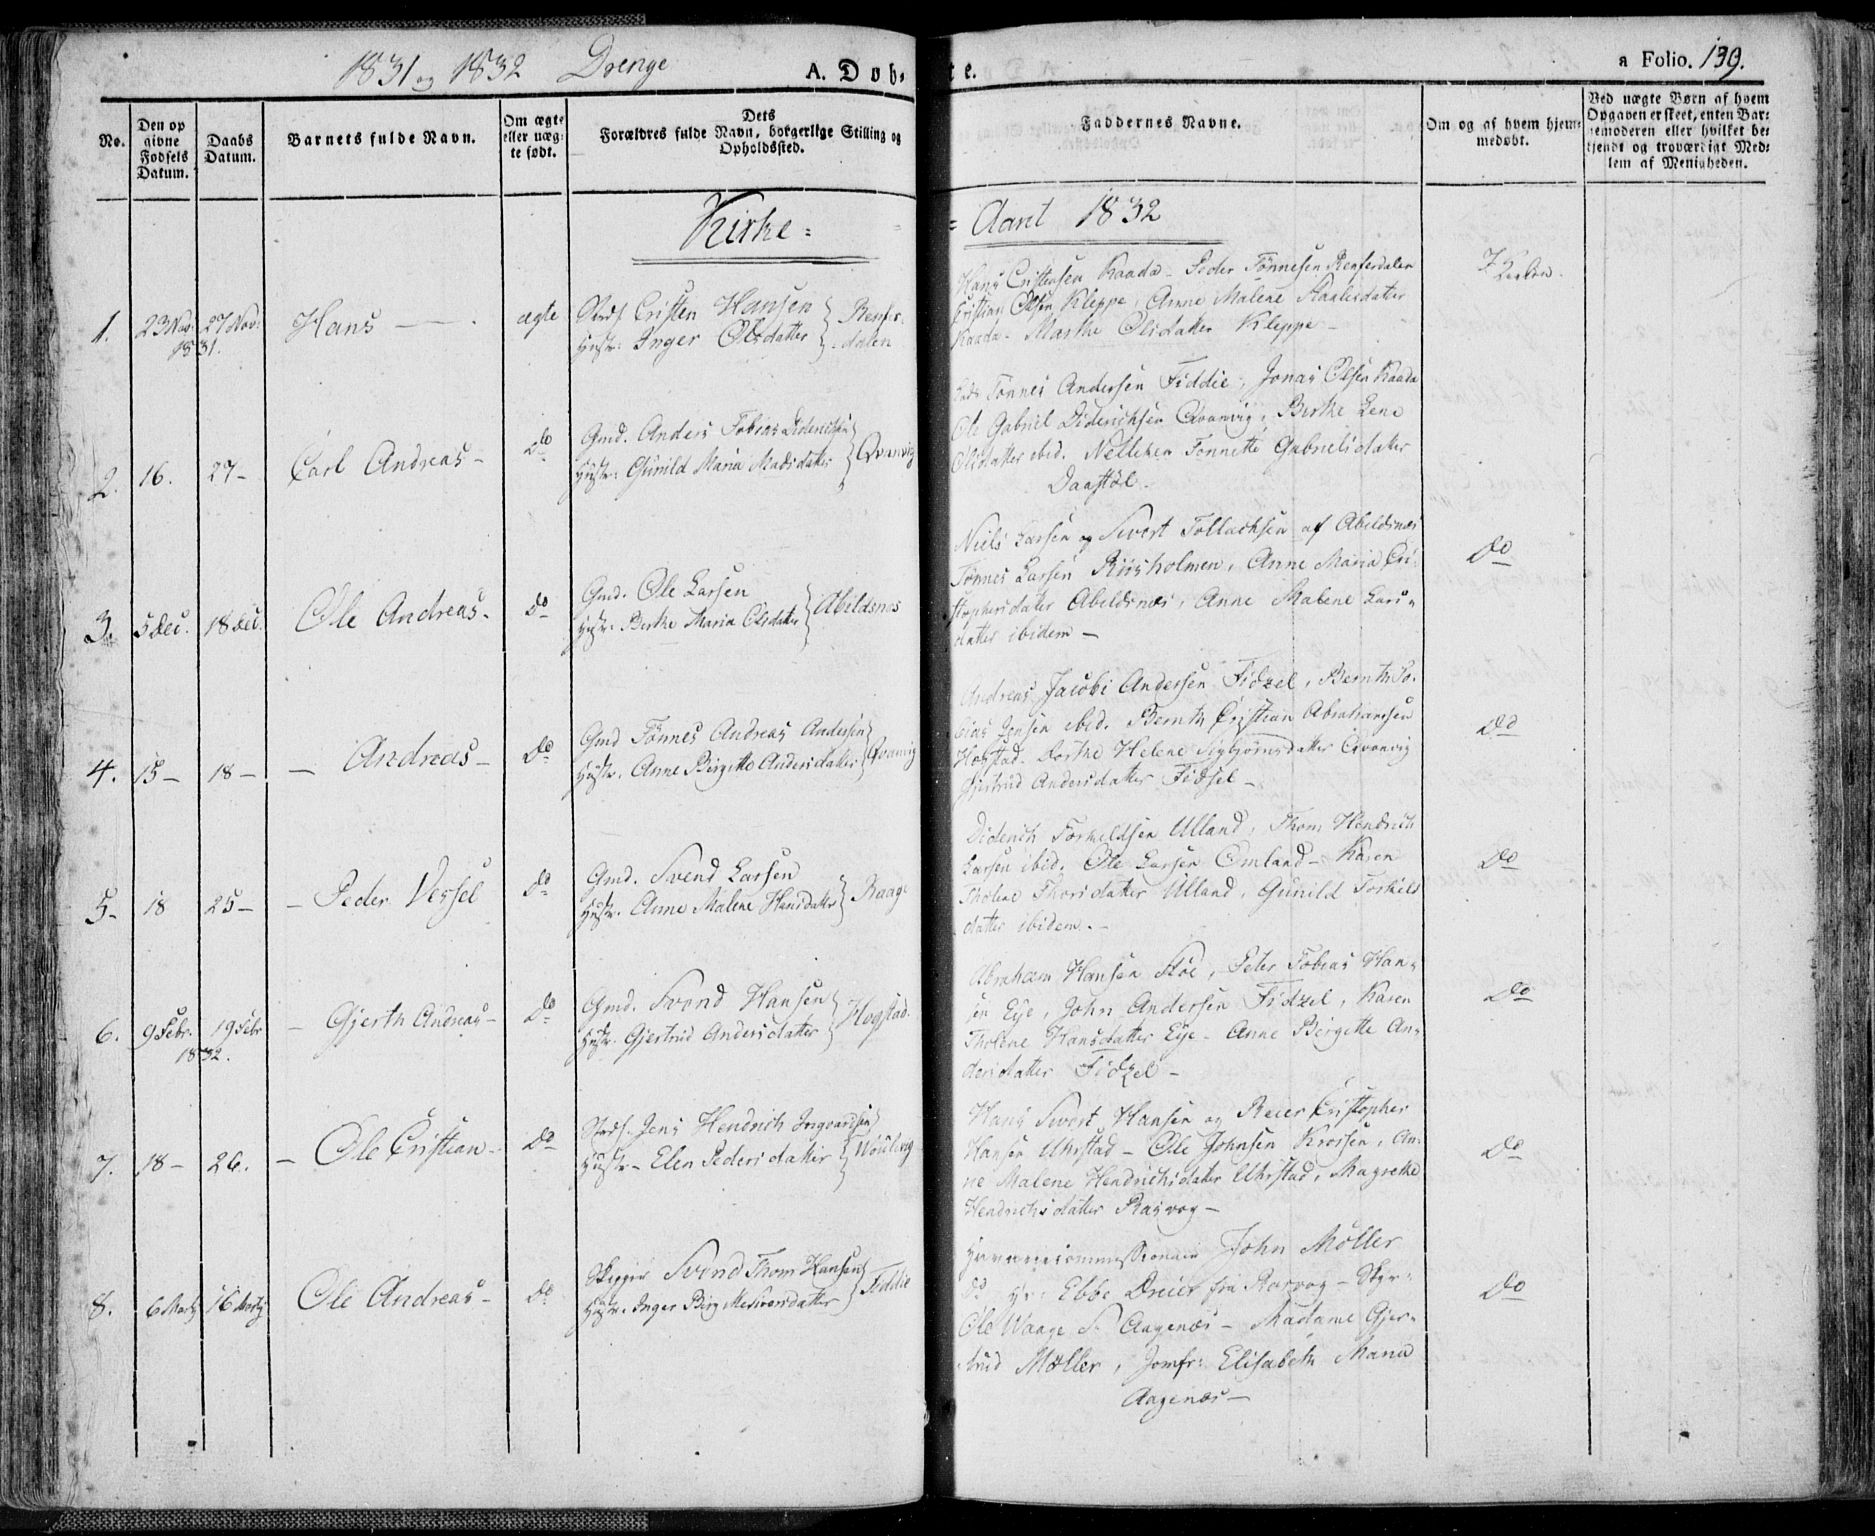 1831 og 1832 Drenge
A. Døb-
te.
a Folio. 139.
No.
Den op
givne
Fødsels
Datum.
Daabs
Datum.
Barnets fulde Navn.
Om ægte
eller uæg-
te født.
Dets
Forældres fulde Navn, borgerlige Stilling og
Opholdssted.
Faddernes Navne.
Om og af hvem hjem-
medøbt.
Ved uægte Børn af hvem
Opgaven er skeet, enten Bar-
nemoderen eller hvilket be-
kjendt og troværdigt Med-
lem af Menigheden.
Kirke-
Aaret 1832
1. 23 Nov: 27 Nov:
1831.
Hans
ægte
Cristen Hansen
Hustr: Inger Olsdatter
Renfer-
dalen
Hans Cristensen Kaada - Peder Tönnesen Renferdalen
Cristian Olsen Kleppe, Anne Malene
Kaada - Marthe Olsdatter Kleppe -
2. 16. 27 -
Carl Andreas -
do
Gmd. Anders Tobias Diderichsen
Hustr: Gunild Maria Madsdatter
Qvanvig
Tönnes Andersen Fiddie, Jonas Olsen Kaada
Ole Gabriel Diderichsen Qvanvig, Birthe Lene
Olsdatter ibid. Tonnette Gabrielsdatter
Daastöl -
3. 5 Dec. 18 Dec.
Ole Andreas -
do
Gmd. Ole Larsen
Hustr: Birthe Maria Olsdatter
Abildsnes
Niels Larsen og Sivert Tollachsen af Abildsnes
Tönnes Larsen Riisholmen, Anne Maria Cri-
stophersdatter Abeldsnes, Anne Malene Lars-
datter ibidem -
do
4. 15 - 18 -
Andreas -
do
Gmd Tönnes Andreas Andersen
Hustr. Anne Birgitte Andersdatter
Qvanvig
Andreas Jacobi Andersen Fidzel, Bernth To-
bias Jensen ibid. Bernth Cristian Abrahamsen
Hogstad. Dorthe Helene Sigbjörnsdatter Qvanvig
Gjertrud Andersdatter Fidsel -
do
5. 18 25 -
Peder Vessel
do
Gmd. Svend Larsen
Hustr. Anne Malene Hansdatter
Raage
Diderich Torkeldsen Ulland, Thom Hendrich
Larsen ibid. Ole Larsen Omland - Karen
Tholene Thorsdatter Ulland, Gunild Torkilds
datter ibidem. -
do
6. 9 Febr. 19 Febr
1832.
Gjerth Andreas -
do
Gmd. Svend Hansen
Hustr. Gjertrud Andersdatter
Hogstad.
Abraham Hansen Stöe, Peter Tobias Han-
sen Eye, John Andersen Fidzel, Karen
Tholene Hansdatter Eye - Anne Birgitte An-
dersdatter Fidzel -
do
7. 18 - 26.
Ole Cristian -
do
Jens Hendrich Ingvardsen
Hustr - Elen Pedersdatter
Hans Sivert Hansen og Reier Cristopher
Hansen Uhrstad - Ole Johnsen Krossen, An-
ne Malene Hendrichsdatter Uhrstad, Magrethe
Hendrichsdatter Rasvog -
do
8. 6 Marty 16 Marty
Ole Andreas -
do
Skipper Svend Thom Hansen
Hustr. Inger Birgitte Siversdatter
Fiddie
John Möller
do Hr: Ebbe Dreier fra Rasvog - Skpr-
Ole Waage S. Aagenæs - Madame Gjer-
trud Möller, Jomfr: Elisabeth Maria
Aagenæs -
do